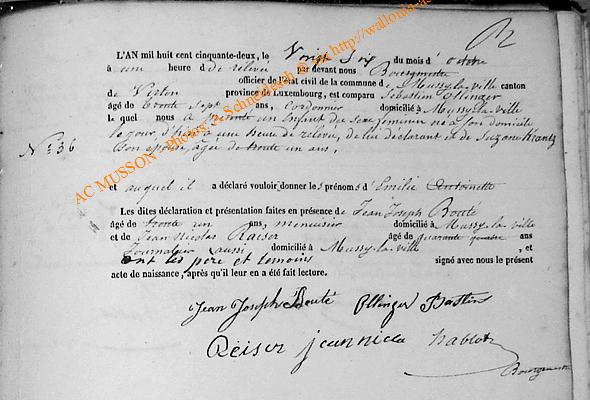 L'AN mil huit cent cinquante-deux, le Vingt Six du mois d'octobre
à une heure d de relevée par devant nous Bourgmestre
officier de l'état civil de la commune de Mussy-la-ville canton
de Virton province de Luxembourg, est comparu Sébastien Ollinger
âgé de trente Sept ans, Cordonnier domicilié à Mussy-la-ville
le quel nous a présenté un Enfant du Sexe féminin né à son domicile
N° 36
ce jour, à une heure de relevée, de lui déclarant et de Suzane Krantz
Son épouse, âgée de trente un ans,
et auquel il a déclaré vouloir donner les prénoms d'Emilie Antoinette
Les dites déclaration et présentation faites en présence de Jean Joseph Bouté
âgé de trente un ans, menuisier domicilié à Mussy-la-ville
et de Jean Nicolas Raiser âgé de quarante quatre ans
Journalier aussi domicilié à Mussy-la-ville, et
ont les père et témoins signé avec nous le présent
acte de naissance, après qu'il leur en a été fait lecture.
Jean Joseph Bouté Ollinger Bastien
Reiser jean nicola
Bourgmestre
AC MUSSON - Photos: A. Schneegiesch @ http://wallonia-as